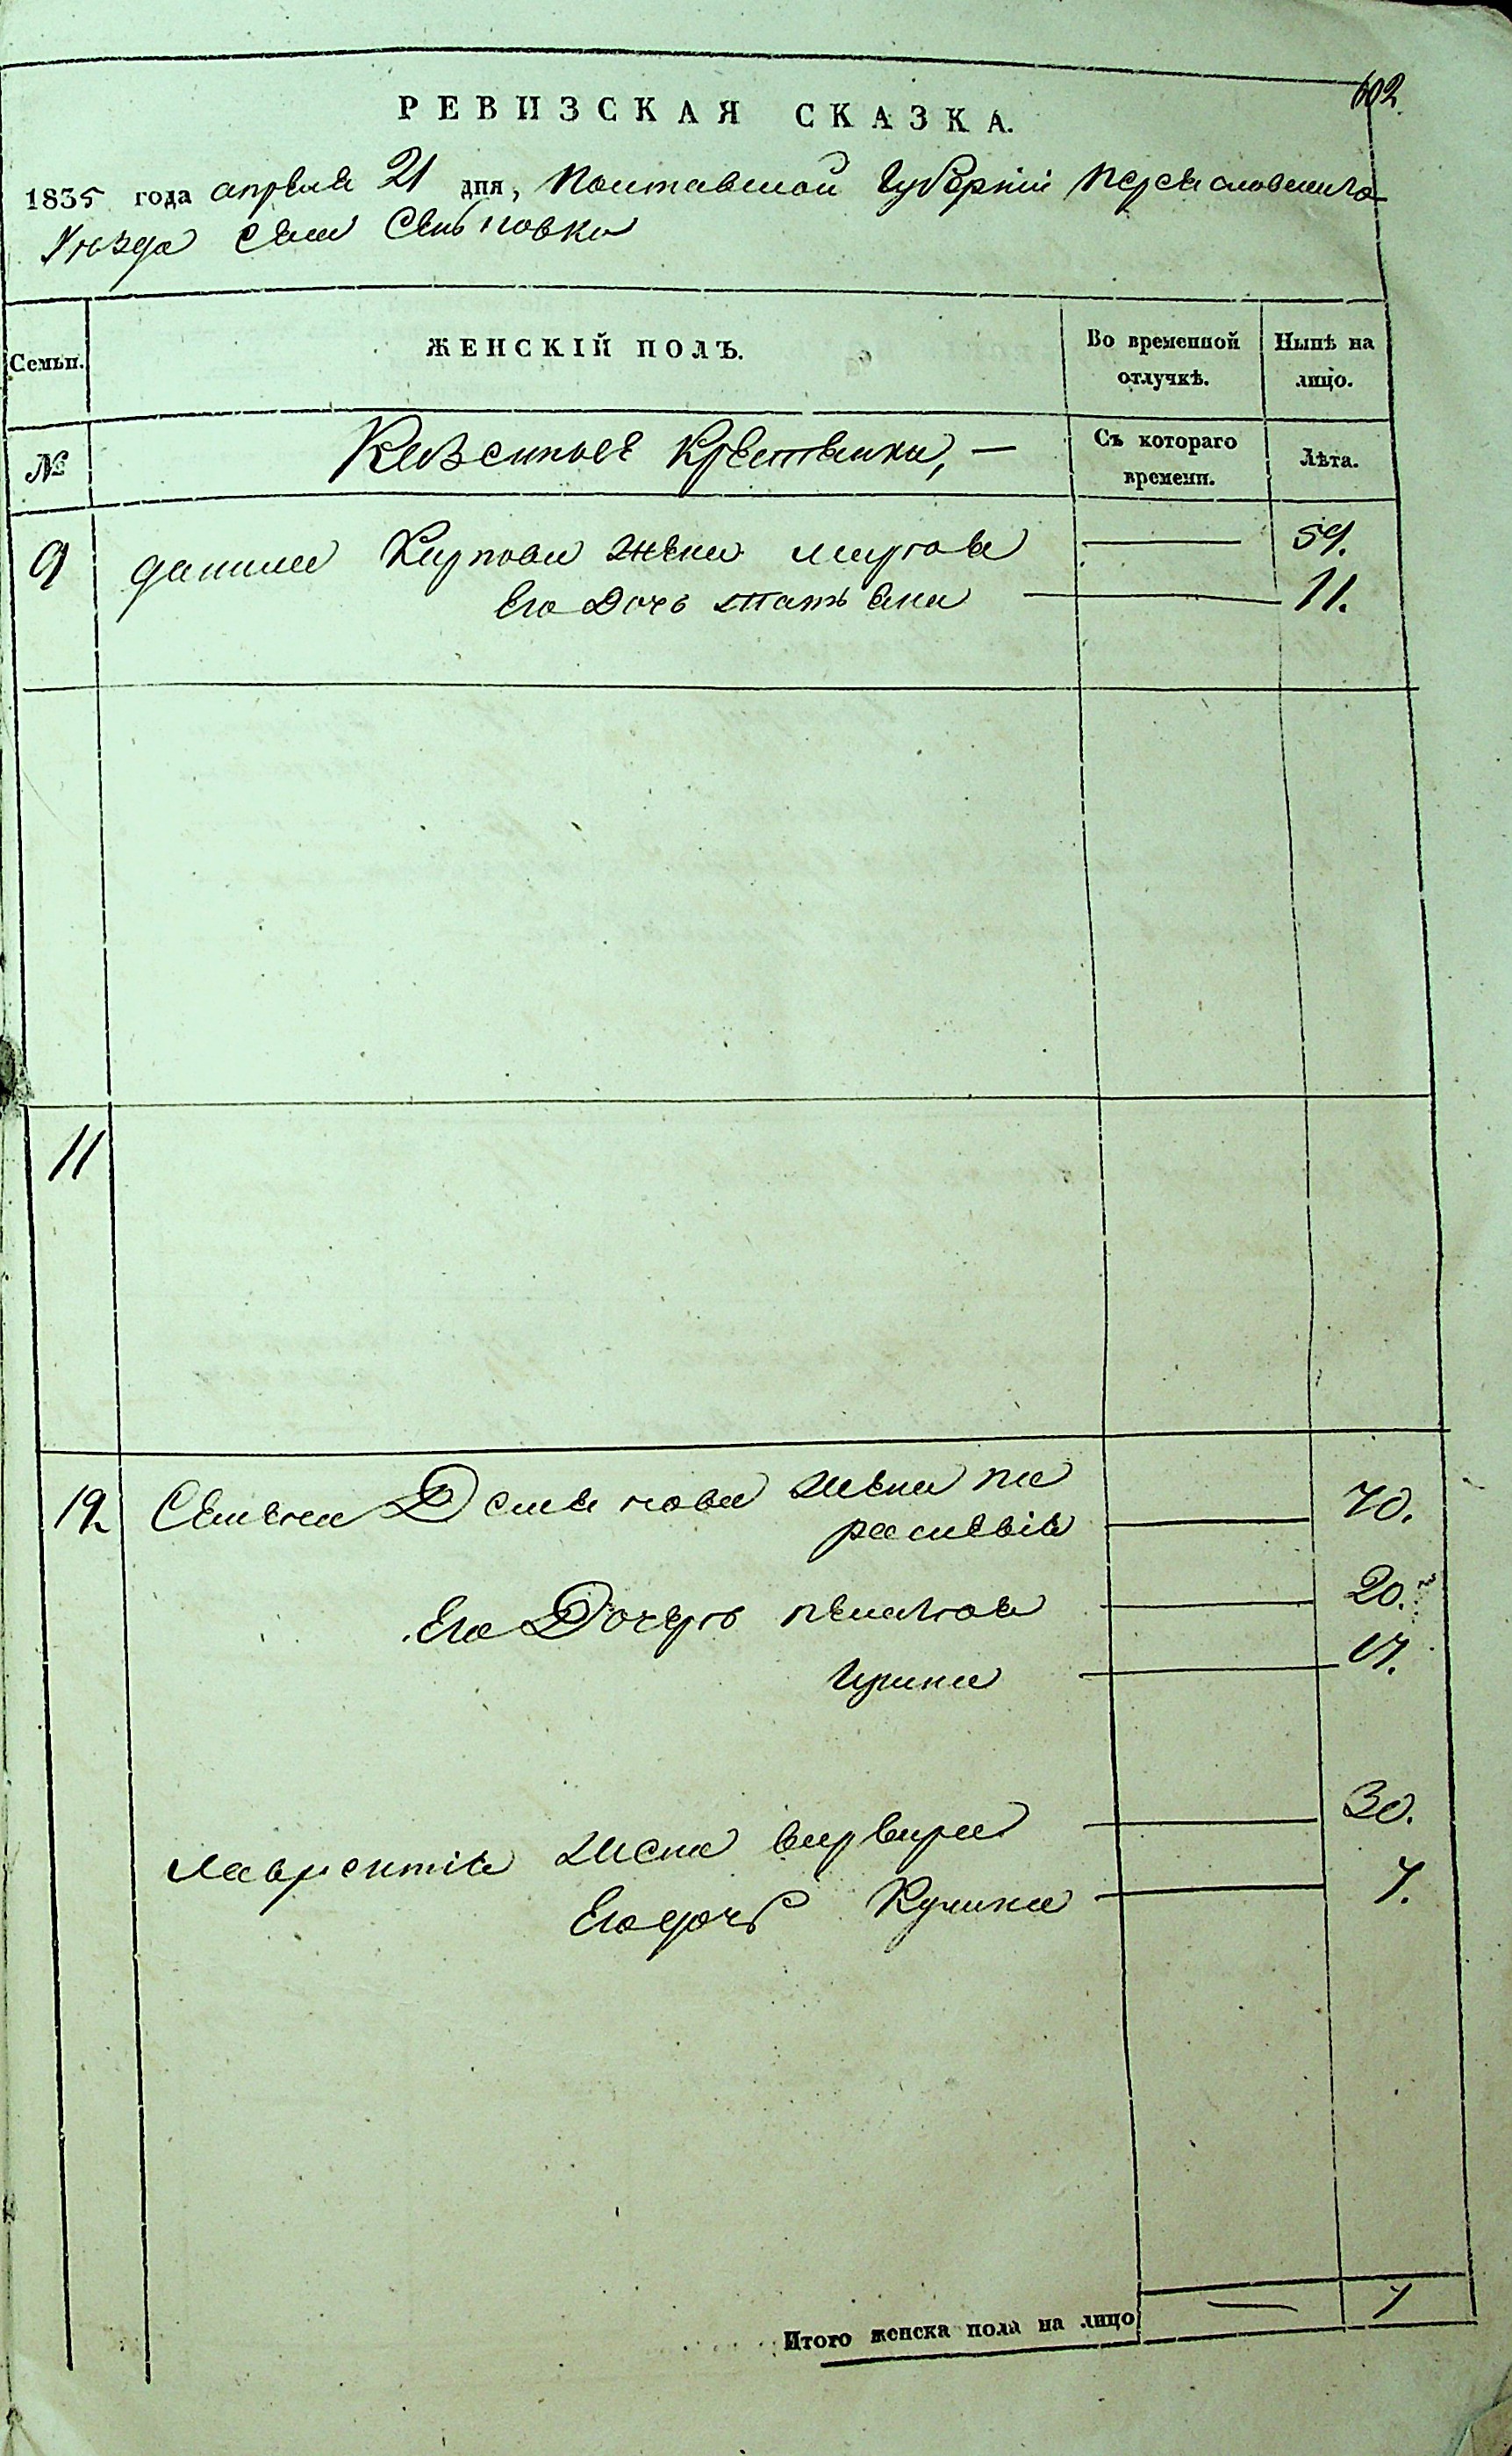 602.
РЕВИЗСКАЯ СКАЗКА.
1835 года апреля 21 дня, Полтавской Губернии Переясловского
Уезда села Сеньковки
Семьи. ЖЕНСКІЙ ПОЛЪ. Во временной отлучкѣ. Нынѣ на лицо.
№ Казенные Крестьянки, — Съ котораго времени. Лѣта.
9 данила Карпова жена марфа — 59.
Его Дочь Татьяна — 11.
11
12 Семена жена па
раскевія — 40.
Его Дочери пелагея — 20.
Ирина — 17.
Лаврентія жена варвара — 30.
Его дочь — 7.
Итого женска пола на лицо — 7